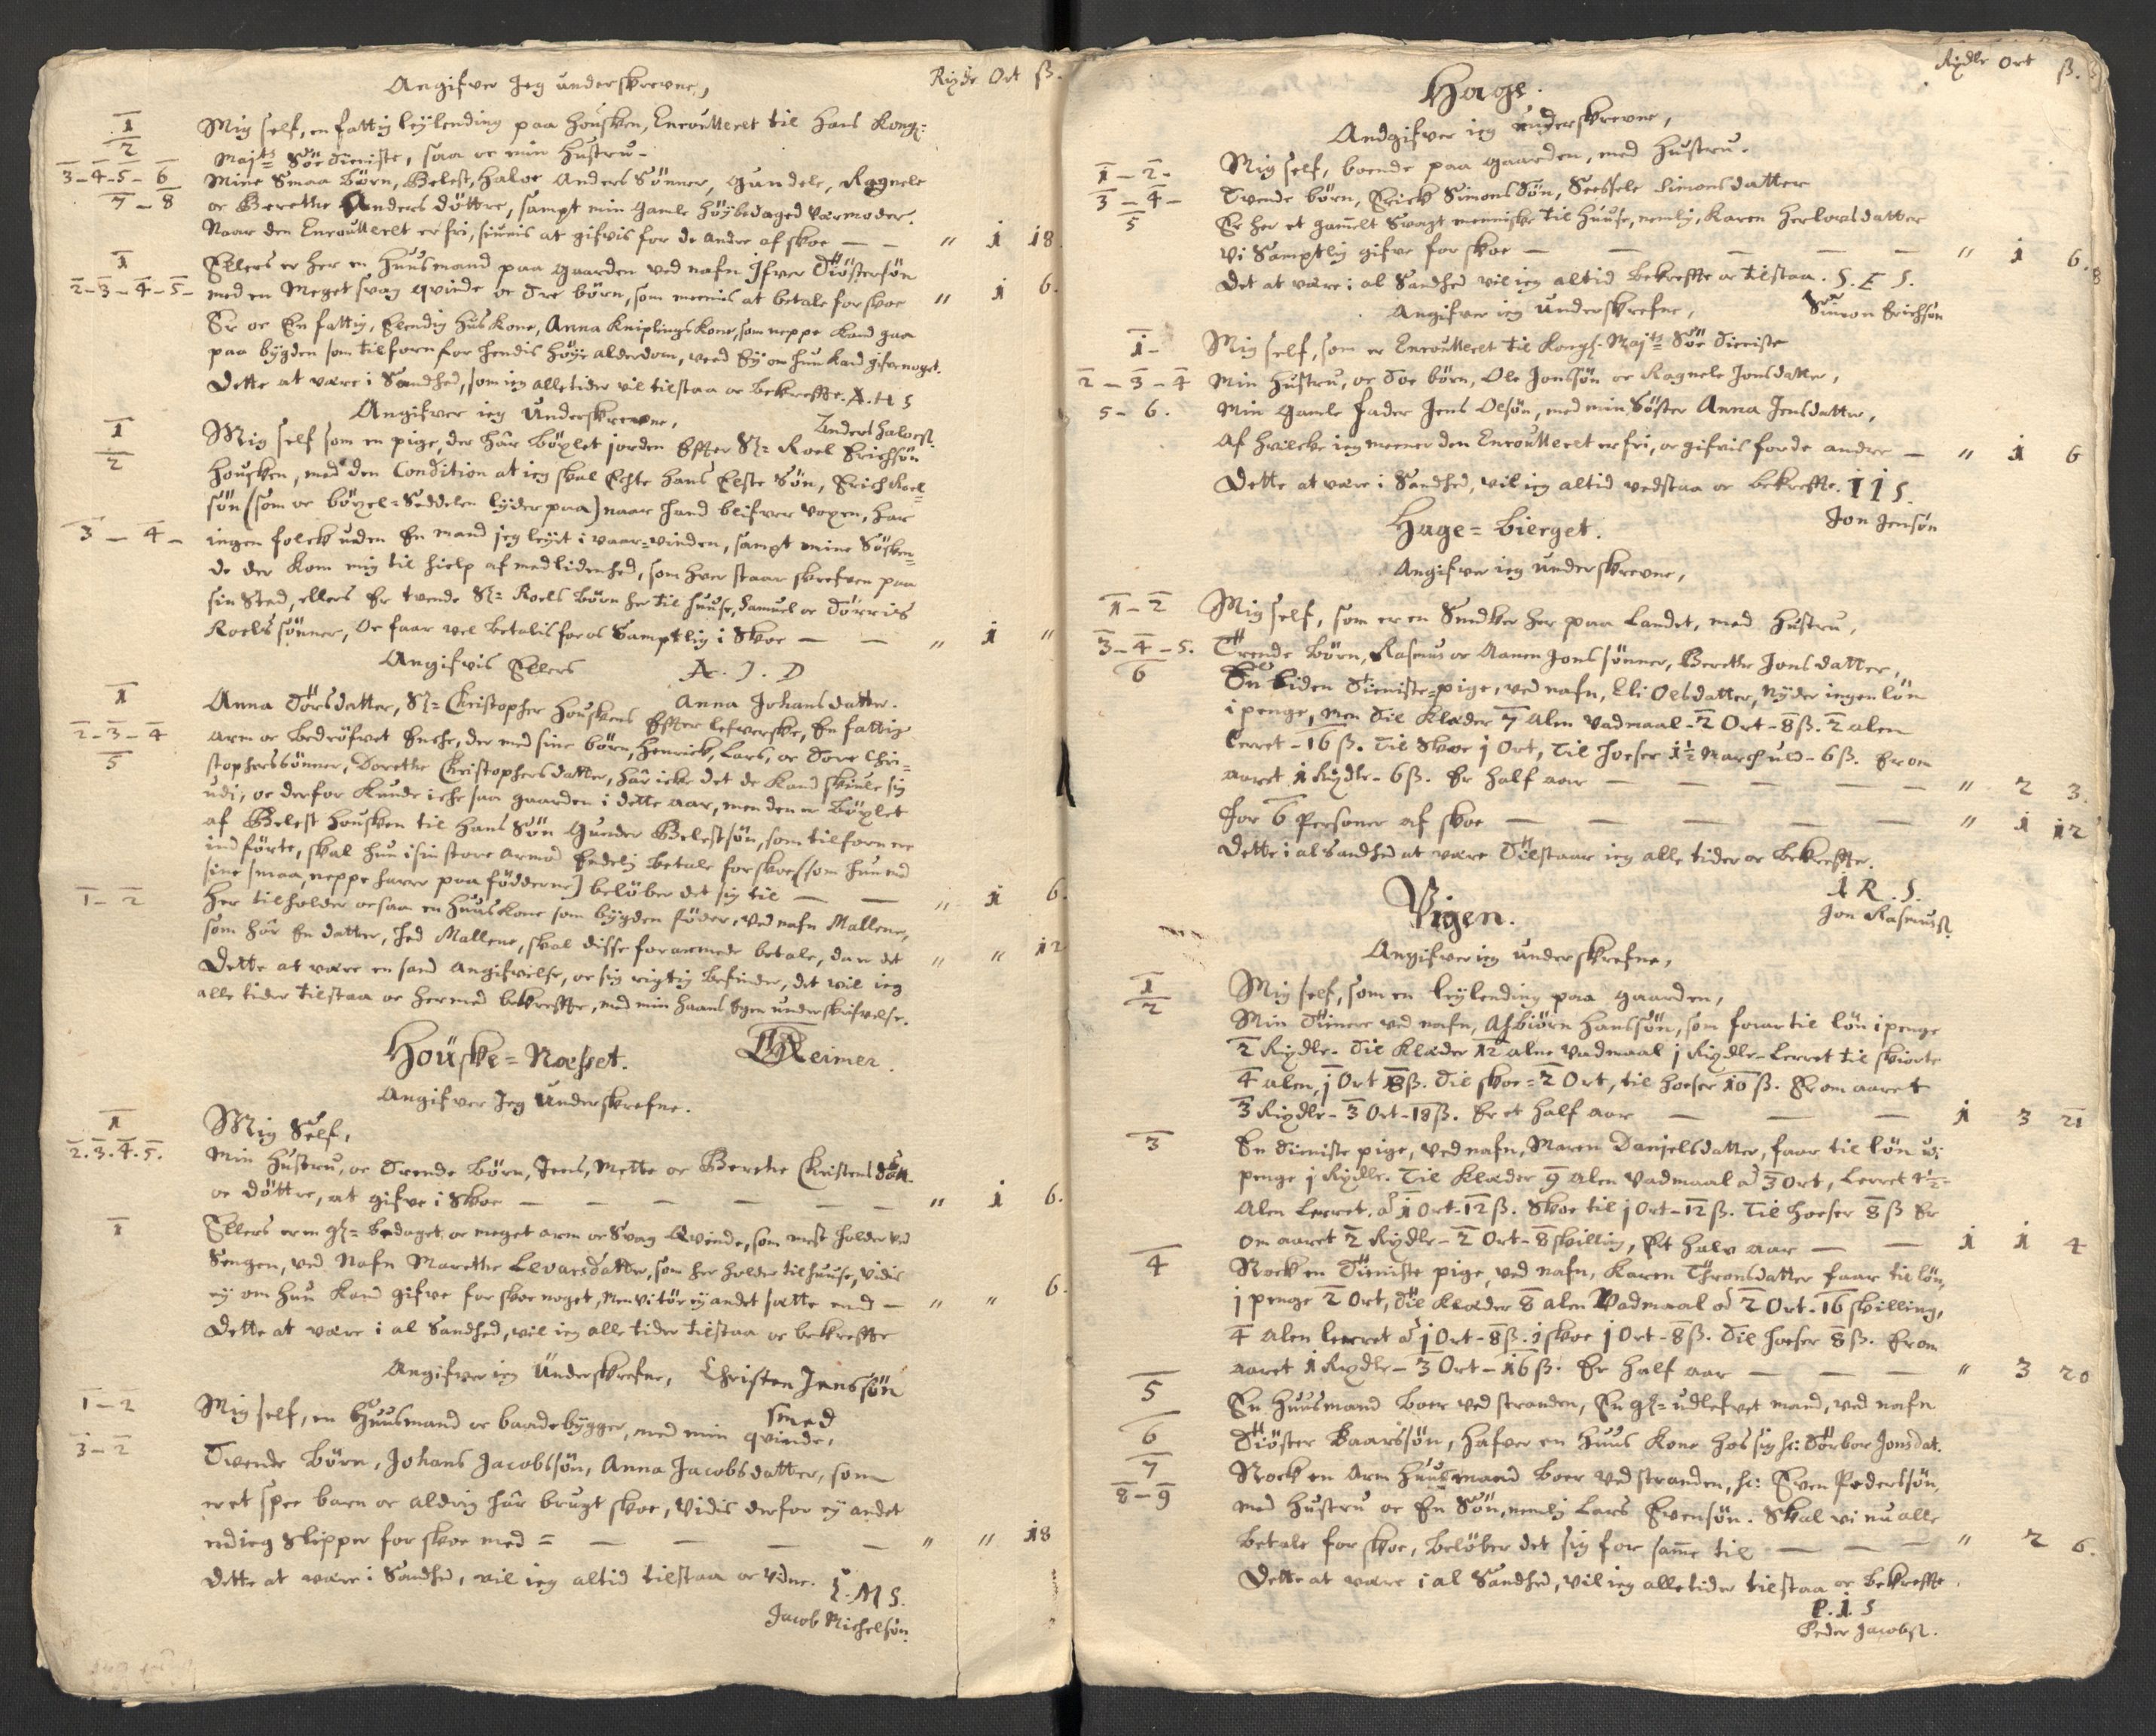 Rixdr Ort ß.
Angifver Jeg underskrevne,
1 Mig self, en fattig leylending paa Housken, Enroulleret til Hans Kong:
2 Majts Söe Tieniste, saa oc min Hustru -
3-4-5-6 Mine Smaa Börn, Belest, Halvor Anders Sönner, Gundele, Ragnele
7-8 oc Berethe Anders döttre, sampt min gamle höybedaged Værmoder.
Naar den Enroulleret er fri, siunis at gifvis for de andre af skoe — — " 1 18
1 Ellers er her en Huusmand paa gaarden ved nafn Ifver Tiöstersön
2-3-4-5- med en Meget svag qvinde oc Tre börn, som meenis at betale for skoe " 1 6.
Er oc En fattig, Elendig Huskone, Anna Kniplingskone, som neppe kand gaa
paa bygden som tilforn for hendis höye alderdom, veed Ey om hun kand gifve noget.
Dette at være i Sandhed, som ieg alle tider vil tilstaa oc bekreffte. A. H S
Anders Halvorß.
Angifver ieg Underskrevne,
1 Mig self som en pige, der hâr böxlet jorden Effter Sl: Roel Erichsön
2 Housken, med den Condition at ieg skal Echte hans Elste Sön, Erich Roel=
sön (som oc böxel=Seddelen lyder paa) naar hand blifver voxen, har
3 — 4 - ingen folck uden En mand jeg leyit i vaar=vinden, sampt mine Sösken=
de der kom mig til hielp af medlidenhed, som hver staar skrefven paa
sin Sted, ellers Er tvende Sl: Roels Börn her til huuse, Samuel oc Torris
Roelssönner, Oc faar vel betalis for os Samptlig i Skoe — — " 1 "
A. J. D
Anna Johansdatter.
Angifvis Ellers
1 Anna Torsdatter, Sl: Christopher Houskens Effterlefverske, En fattig
2-3-4 arm oc bedröfvet Enche, der med sine börn, Henrick, Lars, oc Tore Chri=
5 stopherssönner, Dorethe Christophersdatter, hâr icke det de kand skiule sig
udi, oc derfor kunde iche saa gaarden i dette aar, men den er böxlet
af Belest Housken til hans Sön Gunder Belestsön, som tilforn ere
indförte, skal hun i sin store armod Endelig betale for skoe (som hun med
sine smaa, neppe harer paa födderne) belöber det sig til — — " 1 6.
1-2 Her tilholder oc saa en Huuskone som bygden föder, ved nafn Mallene,
som hâr En datter, hed Mallene, skal disse forarmede betale, da er det " " 12
Dette at være en sand angifvelse, oc sig rigtig befinder, det vil ieg
alle tider tilstaa oc hermed bekreffte, med min haands Egen underskrifvelse.
Reimer.
Houske=Næsset.
Angifver Jeg Underskrefne.
1 Mig Self,
2.3.4.5. Min Hustru, oc Trende Börn, Jens, Mette oc Berethe Christens Sön
oc döttre, at gifve i Skoe — — — — — " 1 6.
1 Ellers er en gl: bedaget oc meget arm oc Svag Qvinde, som mest holder ved
Sengen, ved Nafn Marethe Levarsdatter, som her holder til huuse, vides
ey om hun kand gifve for skoe noget, men vi tör ey andet sætte end — " " 6.
Dette at være i al Sandhed, vil ieg alle tider tilstaa oc bekreffte
Christen Jenssön
smed
Angifver ieg Underskrefne,
1-2 Mig self, en Huusmand oc baadebygger, med min qvinde,
3-2 Tvende Börn, Johans Jacobssön, Anna Jacobsdatter, som
er et spee barn oc aldrig hâr brugt skoe, vidis derfor ey andet
end ieg Slipper for skoe med = — — — — " " 18
Dette at være i Sandhed, vil ieg altid tilstaa oc vidne.
I. M S.
Jacob Michelsön
Rixdlr Ort ß.
8
Hage.
Andgifver ieg underskrevne,
1-2. Mig self, boende paa gaarden, med Hustru.
3-4- Tvende börn, Erick Simonssön, Seessele Simonsdatter
5 Er her et gamelt Svagt menniske til Huuse, nemlig, Karen Herlovsdatter
Vi Samptlig gifve for skoe — — — — — " 1 6.
Det at være i al Sandhed vil ieg altid bekreffte oc tilstaa. S. E S.
Simon Erichsön
Angifver ieg Underskrefne,
1- Mig self, som er Enroulleret til Kongl. Majts Söe Tieniste
2-3-4 Min Hustru, oc Toe börn, Ole Jonssön oc Ragnele Jonsdatter,
5-6. Min gamle fader Jens Olsön, med min Söster Anna Jensdatter,
Af hvilcke ieg meener den Enroulleret er fri, oc gifvis for de andre — " 1 6
Dette at være i Sandhed, vil ieg altid vedstaa oc bekreffte. I I S.
Jon Jensön
Hage=bierget.
Angifver ieg Underskrevne,
1-2 Mig self, som er en Snidker her paa Landet, med Hustru,
3-4-5. Trende Börn, Rasmus oc Aanen Jonssönner, Berethe Jonsdatter,
6 En liden Tieniste=pige, ved nafn, Eli Olsdatter, nyder ingen lön
i penge, men Til Klæder 7 Alen Vadmaal-2 Ort-8ß. 2 alen
lerret-16 ß. Til Skoe 1 Ort, Til hoeser 1½ March uld-6ß. Er om
aaret 1 Rixdlr-6ß. Er half aar — — — — — " 2 3.
For 6 Personer af skoe — — — — — " 1 12
Dette i al Sandhed at være Tilstaar ieg alle tider oc bekreffter.
I R. S.
Jon Rasmusß.
Vigen.
Angifver ieg Underskrefne,
1 Mig self, som en leylending paa gaarden,
2 Min Tiener ved nafn, Asbiörn Hanssön, som faar til lön i penge
2 Rixdlr- Til Klæder 12 alne Vadmaal 1 Rixdlr-Lerret til skiorte
4 alen, 1 Ort 8ß. Til skoe=2 Ort, til hoeser 10 ß. Er om aaret
3 Rixdlr-3 Ort-18ß. Er et half aar — — — 1 3 21
3 En Tieniste pige, ved nafn, Maren Danjelsdatter, faar til lön udi
penge 1 Rixdlr. Til Klæder 9 alen Vadmaal â 3 Ort, Lerret 4½-
Alen Lerret. â 1 Ort-12ß. Skoe til 1 Ort-12ß. Til hoeser 8 ß Er
om aaret 2 Rixdlr-2 Ort-8 skilling, Et halv aar — — 1 1 4
4 Nock en Tieniste pige, ved nafn, Karen Thronsdatter faar til lön,
i penge 2 Ort, Til Klæder 8 alen Vadmaal â 2 Ort-16 skilling,
4 alen lerret â 1 Ort-8ß. i skoe 1 Ort-8ß. Til hoeser 8ß. Er om
aaret 1 Rixdlr-3 Ort-16ß. Er half aar — — — " 3 20
5 En Huusmand boer ved stranden, En gl: udlefvet mand, ved nafn
6 Tiöster Baarssön, hafver en Huus kone hos sig h: Torbor Jonsdat.
7 Nock en Arm Huusmand boer ved stranden, h: Even Pederssön,
8-9 med Hustru oc En Sön, nemlig Lars Evensön. Skal vi nu alle
betale for skoe, belöber det sig for same til — — — " 2 6.
Dette at være i al Sandhed, vil ieg alle tider tilstaa oc bekreffte.
P. I. S
Peder Jacobß.